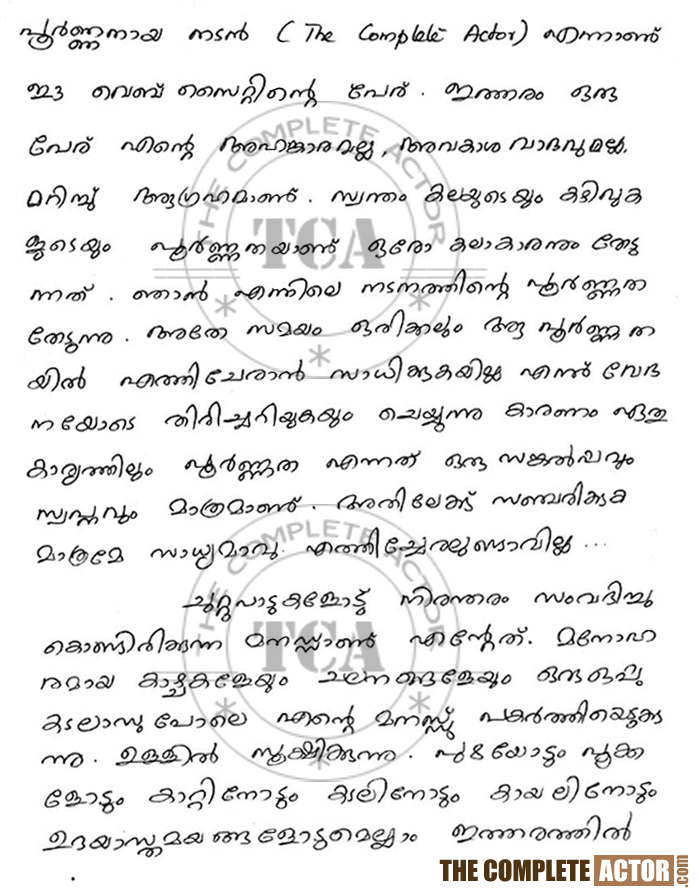 പൂർണ്ണനായ നടൻ (The Complete Actor) എന്നാണ്
ഈ വെബ് സൈറ്റിന്റെ പേര്. ഇത്തരം ഒരു
പേര് എന്റെ അഹങ്കാരമല്ല, അവകാശ വാദവുമല്ല.
മറിച്ച് ആഗ്രഹമാണ്. സ്വന്തം കലയുടെയും കഴിവുക
ളുടെയും പൂർണ്ണതയാണ് ഒരോ കലാകാരനും തേടു
ന്നത്. ഞാൻ എന്നിലെ നടനത്തിന്റെ പൂർണ്ണത
തേടുന്നു. അതേ സമയം ഒരിക്കലും ആ പൂർണ്ണത
യിൽ എത്തിചേരാൻ സാധിക്കുകയില്ല എന്ന് വേദ
നയോടെ തിരിച്ചറിയുകയും ചെയ്യുന്നു കാരണം ഏതു
കാര്യത്തിലും പൂർണ്ണത എന്നത് ഒരു സങ്കൽപ്പവും
സ്വപ്നവും മാത്രമാണ്. അതിലേക്ക് സഞ്ചരിക്കുക
മാത്രമേ സാധ്യമാവൂ. എത്തിച്ചേരലുണ്ടാവില്ല ...
ചുറ്റുപാടുകളോട് നിരന്തരം സംവദിച്ചു
കൊണ്ടിരിക്കുന്ന മനസ്സാണ് എന്റേത്. മനോഹ
രമായ കാഴ്ചകളേയും ചലനങ്ങളേയും ഒരു ഒപ്പു
കടലാസു പോലെ എന്റെ മനസ്സ് പകർത്തിയെടുക്കു
ന്നു. ഉള്ളിൽ സൂക്ഷിക്കുന്നു. പുഴയോടും പൂക്ക
ളോടും കാറ്റിനോടും കടലിനോടും കായലിനോടും
ഉദയാസ്തമയങ്ങളോടുമെല്ലാം ഇത്തരത്തിൽ
THE COMPLETE ACTOR
TCA
THE COMPLETE ACTOR
TCA
THE COMPLETE ACTOR.com